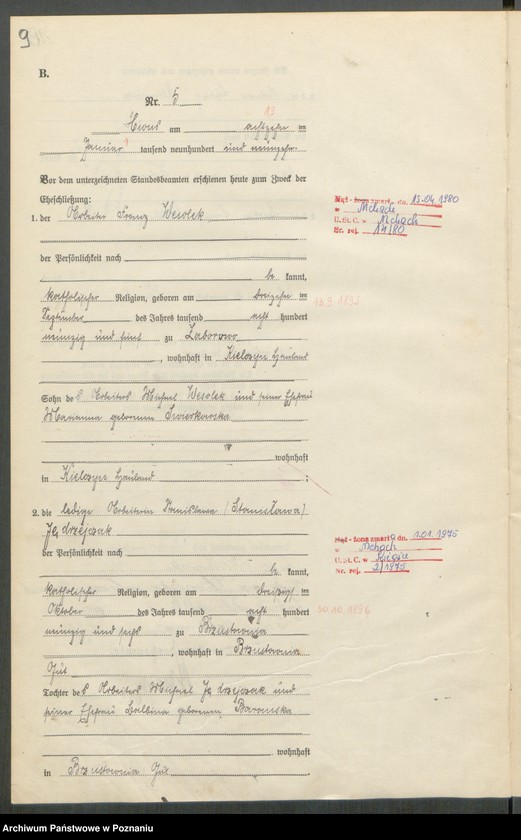 9
B.
Nr. 5
am achtzehn im
13
Januar tausend neunhundert und neunzehn.
Vor dem unterzeichneten Standesbeamten erschienen heute zum Zweck der
Eheschließung:
1. der Arbeiter Franz Wesolek
der Persönlichkeit nach
be kannt,
katholischer Religion, geboren am dreizehn im
September des Jahres tausend acht hundert
neunzig und fünf zu
, wohnhaft in Hauland
Sohn des Arbeiters Michael Wesolek und seiner Ehefrau
Marianna geborenen
wohnhaft
in Hauland ;
2. die ledige Arbeiterin Stanislawa (Stanisława)
Jędrzejczak
der Persönlichkeit nach
be kannt,
katholischer Religion, geboren am dreißig im
Oktober des Jahres tausend acht hundert
neunzig und sechs zu Brzustownia
, wohnhaft in Brzustownia
Gut
Tochter des Arbeiters Michael Jędrzejczak und
seiner Ehefrau Balbina geborenen Baranska
wohnhaft
in Brzustownia Gut
Mąż - żona zmarł dn. 13.04 1980
w Mchach
U.St.C. w Mchach
Nr. rej. 14/80
13.9.1895
Mąż - żona zmarła dn. 1.01.1975
w Mchach
U.St.C. w Książ
Nr. rej. 2/1975
30.10.1896
Archiwum Państwowe w Poznaniu
szukajwarchiwach.pl